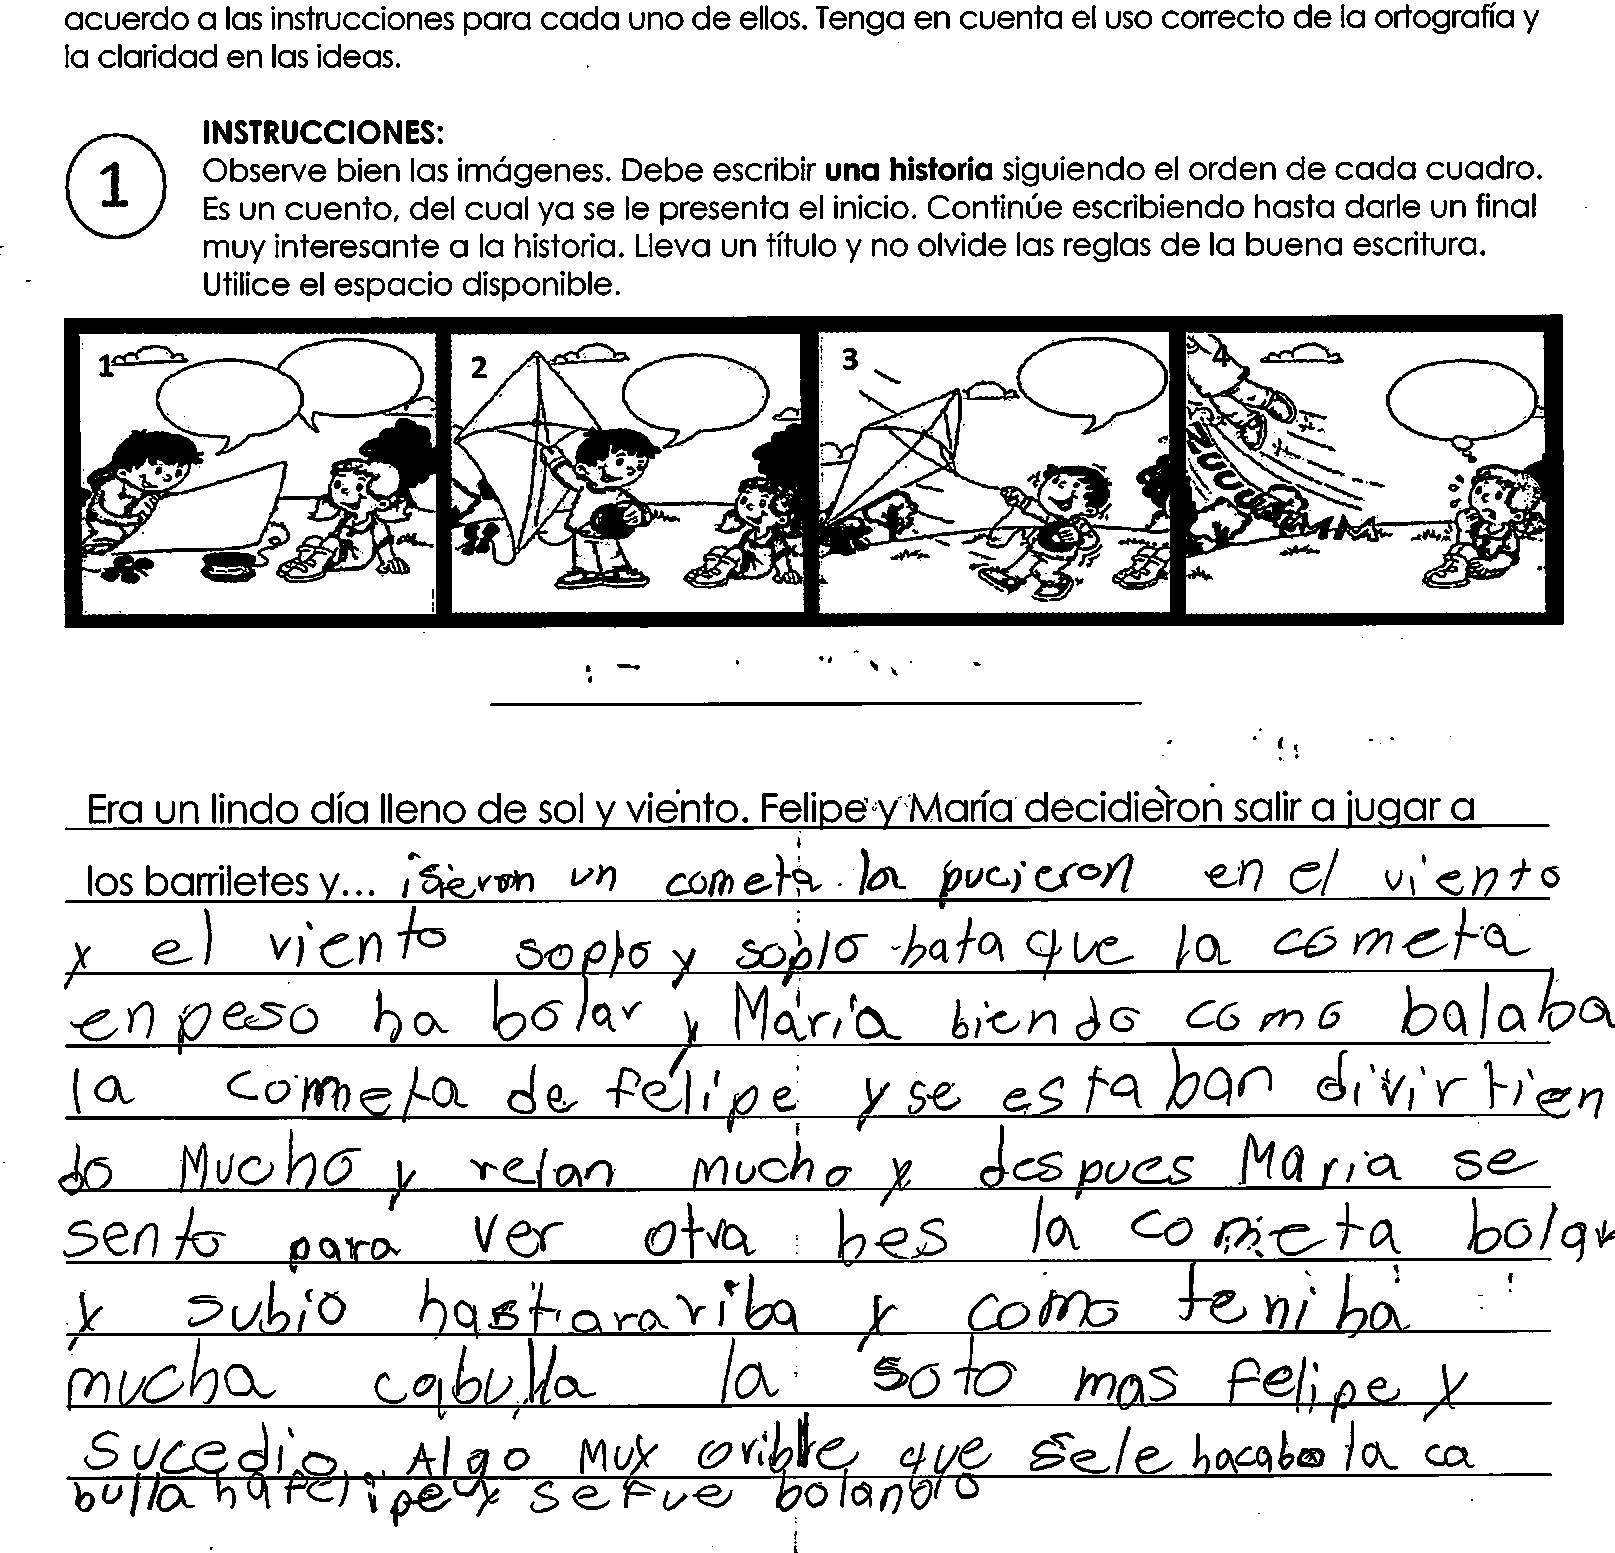 acuerdo a las instrucciones para cada uno de ellos. Tenga en cuenta el uso correcto de la ortografía y
la claridad en las ideas.
1
INSTRUCCIONES:
Observe bien las imágenes. Debe escribir una historia siguiendo el orden de cada cuadro.
Es un cuento, del cual ya se le presenta el inicio. Continúe escribiendo hasta darle un final
muy interesante a la historia. Lleva un título y no olvide las reglas de la buena escritura.
Utilice el espacio disponible.
1 2 3 4
Era un lindo día lleno de sol y viento. Felipe y María decidieron salir a jugar a
los barriletes y... isieron un cometa la pucieron en el viento
y el viento soplo y soplo hata que la cometa
en peso ha bolar y María biendo como balaba
la cometa de felipe y se estaban divirtien
do Mucho y reian mucho y despues Maria se
sento para ver otra bes la cometa bolar
y subio hastararriba y como teniba
mucha cabulla la soto mas Felipe y
sucedio Algo Muy orible que sele hacabo la ca
bulla ha felipe y se fue bolando